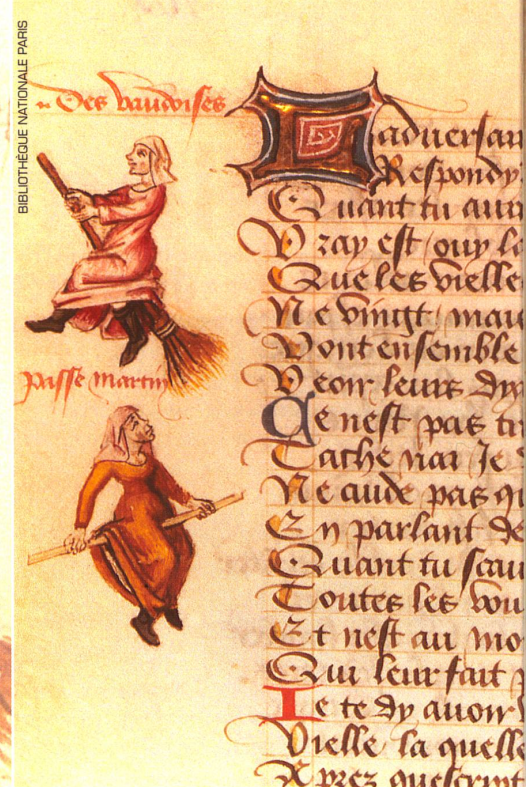 BIBLIOTHÈQUE NATIONALE PARIS
Des vaudoises
passe martin
Ladversai
Respondy
Quant tu aur
Vray est / ouy l
Que les vielle
Ne vingt / mai
Vont ensemble
Veoir leurs dy
Ce nest pas tr
Tache nai Je
Ne cuide pas q
En parlant de
Quant tu scau
Toutes les vou
Et nest au mo
Qui leur fait
Je te dy avoir
Vielle la quelle
Aprez quescript